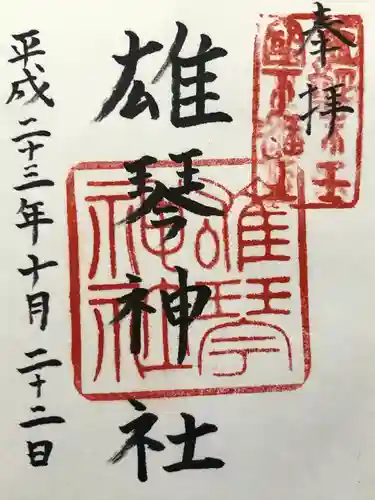 奉拝
雄琴神社
平成二十三年十月二十二日
雄琴
神社